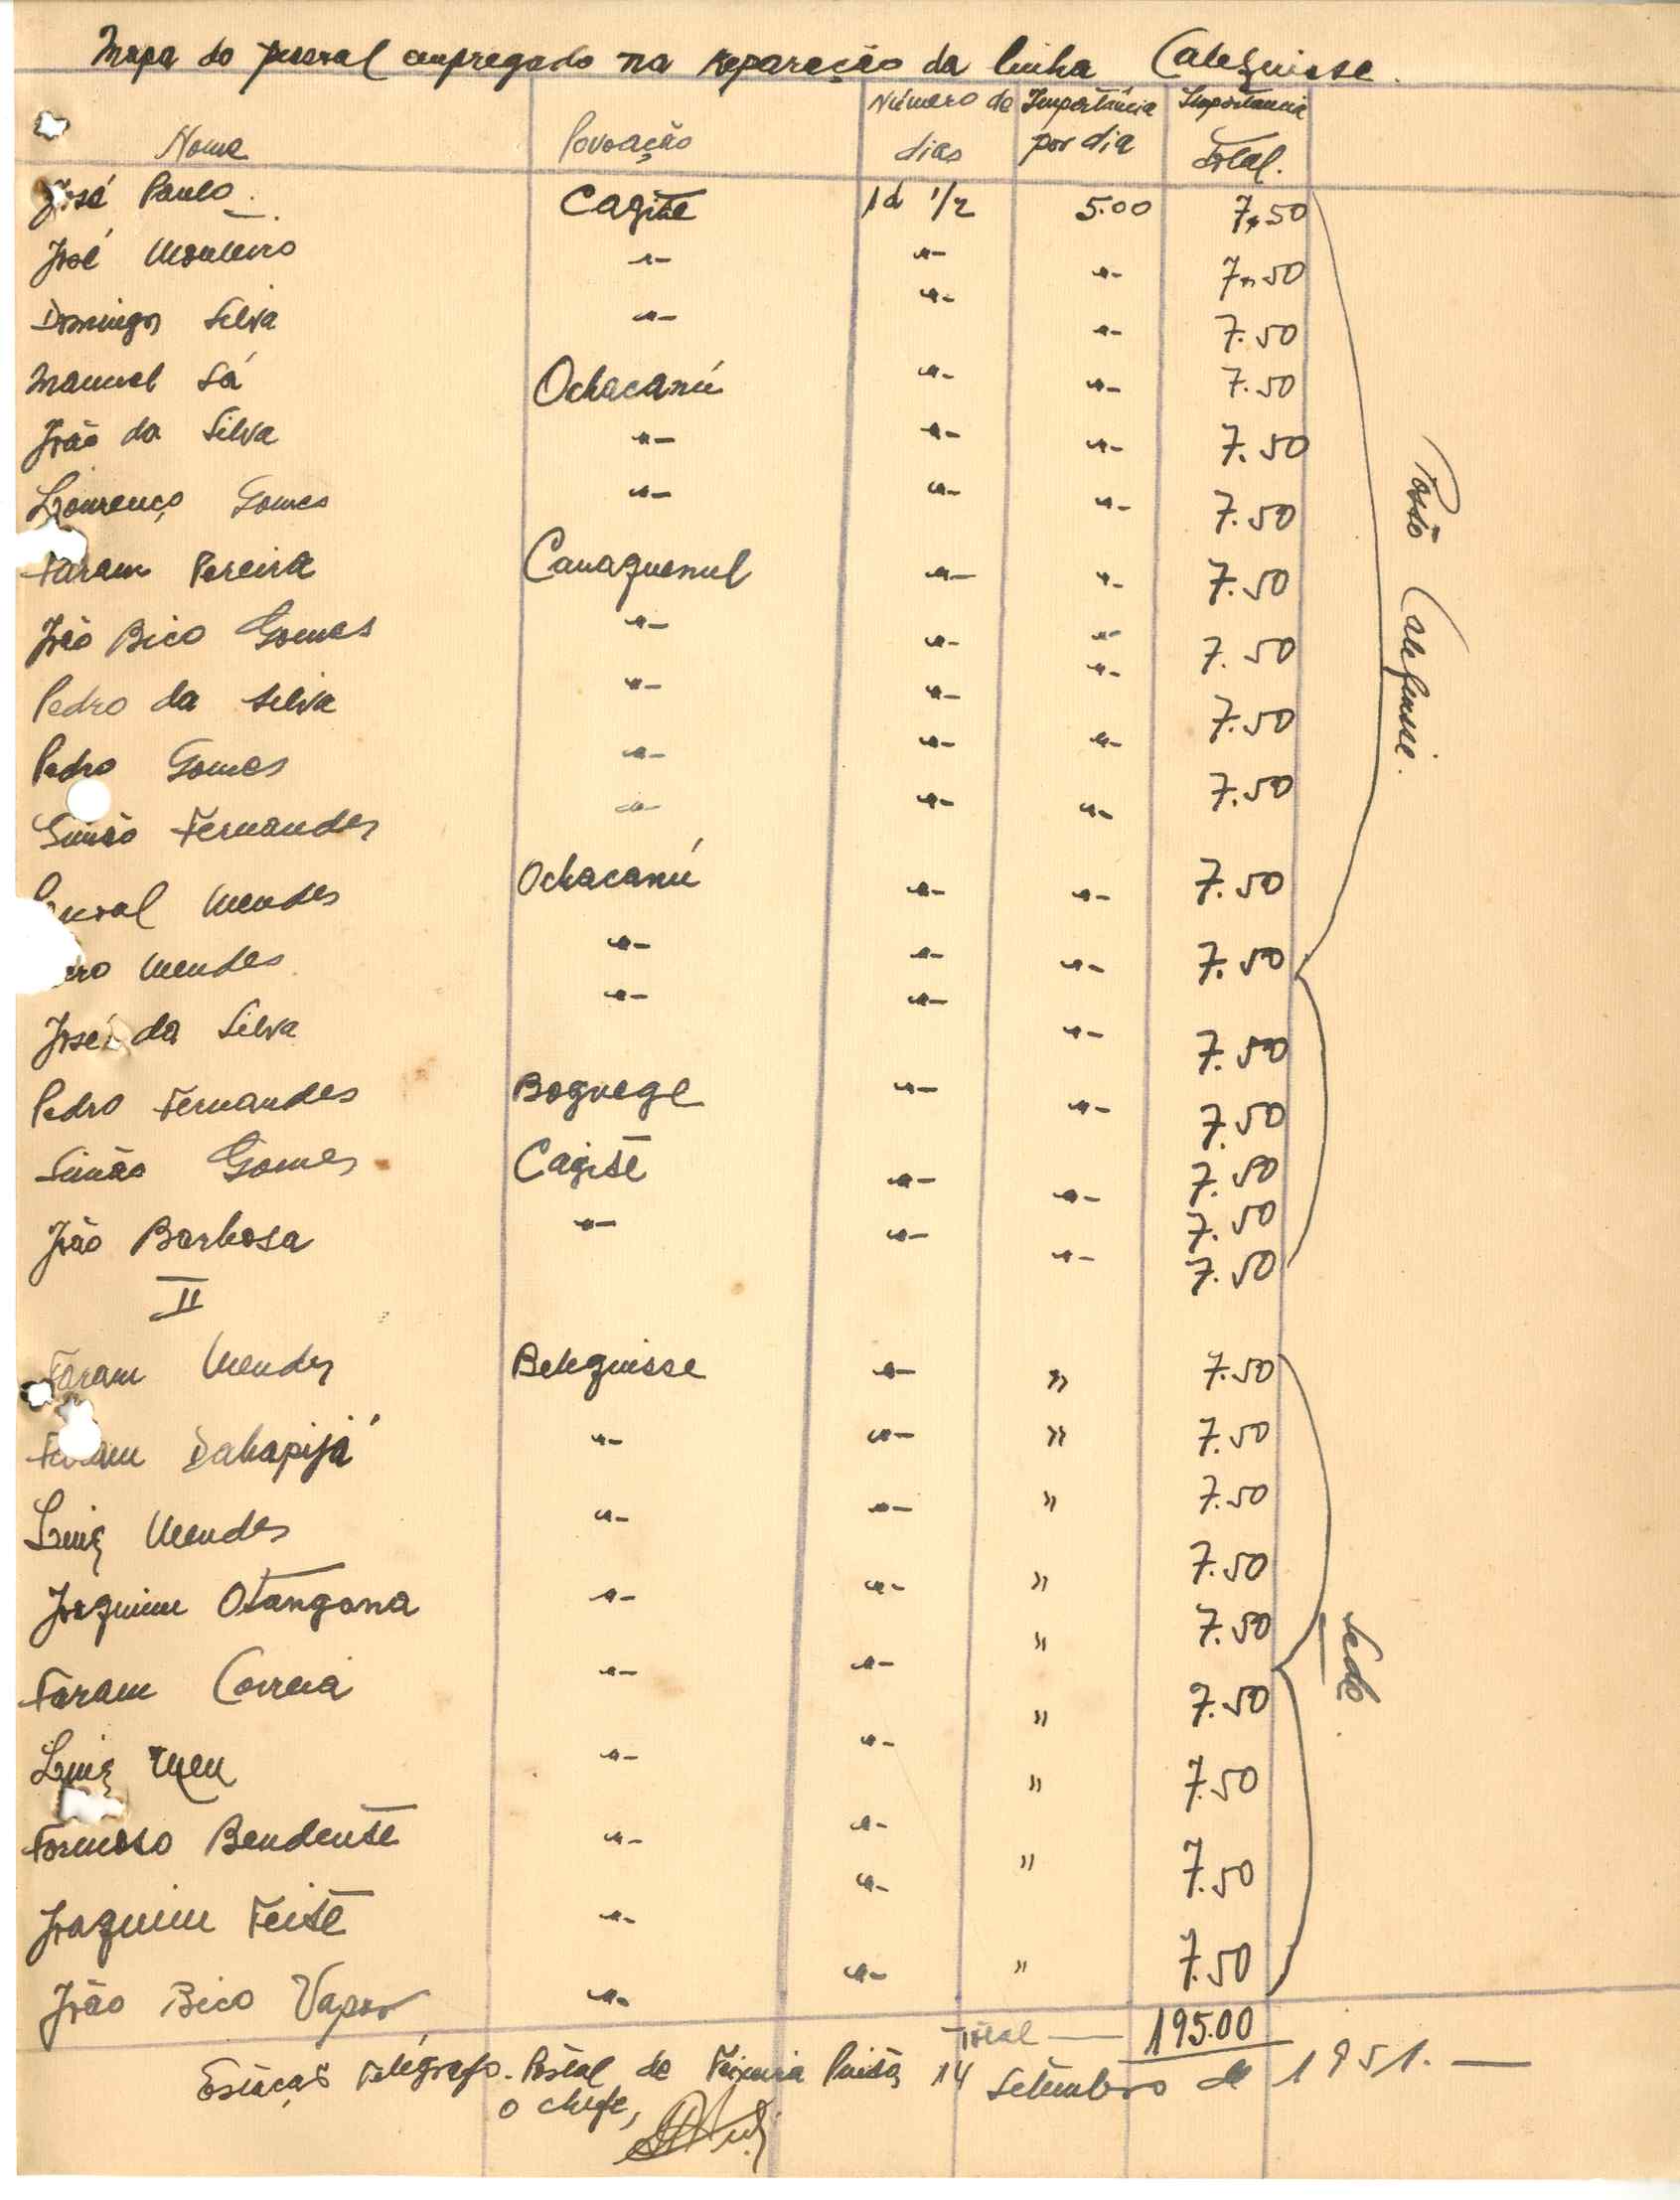 Mapa do pessoal empregado na reparação da linha Calequisse.
Nome Povoação Número de dias Importância por dia Importancia Total.
José Paulo. Cagite 1d 1/2 5.00 7,50
José Monteiro -"- -"- -"- 7,50
Domingos Silva -"- -"- -"- 7.50
Manuel Sá Ochacanú -"- -"- 7.50
João da Silva -"- -"- -"- 7.50
Lourenço Gomes -"- -"- -"- 7.50
Faram Pereira Canaquenul -"- -"- 7.50
João Bico Gomes -"- -"- -"- 7.50
Pedro da Silva -"- -"- -"- 7.50
Pedro Gomes -"- -"- -"- 7.50
Simão Fernandes -"- -"- -"- 7.50
Mendes Ochacanú -"- -"- 7.50
Mendes -"- -"- -"- 7.50
José da Silva -"- -"- -"- 7.50
Pedro Fernandes Boguege -"- -"- 7.50
Simão Gomes Cagite -"- -"- 7.50
João Barbosa -"- -"- -"- 7.50
Posto Calequisse.
II
Faram Mendes Beliquisse -"- " 7.50
Faram Dahapijá -"- -"- " 7.50
Luiz Mendes -"- -"- " 7.50
Joaquim Otangana -"- -"- " 7.50
Faram Correia -"- -"- " 7.50
Luiz -"- -"- " 7.50
Formoso Bendente -"- -"- " 7.50
Joaquim Feite -"- -"- " 7.50
João Bico Vapor -"- -"- " 7.50
Sede.
Total — 195.00
Estação Telégrafo-Postal de Teixeira Pinto, 14 Setembro de 1951. —
O chefe,